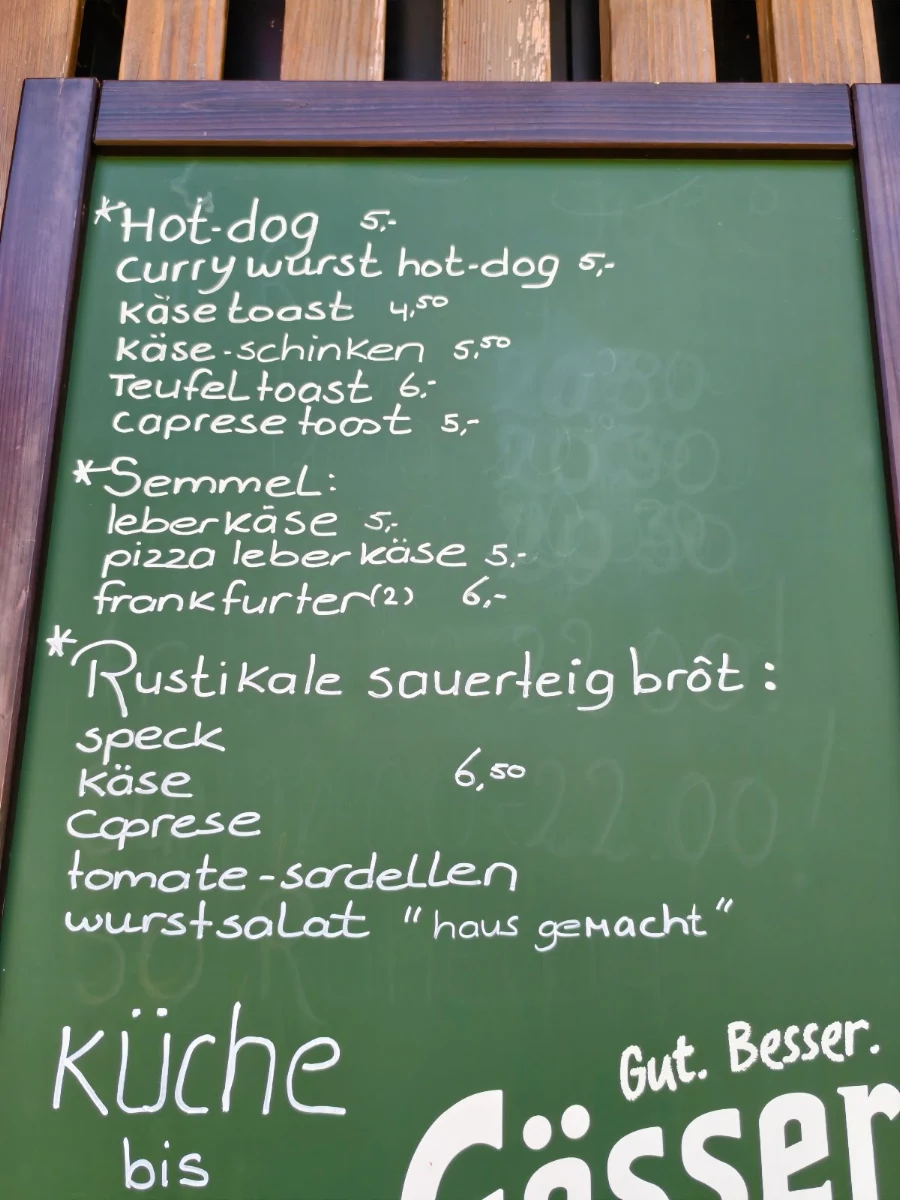 *Hot-dog 5,-
currywurst hot-dog 5,-
käse toast 4,50
käse-schinken 5,50
Teufel toast 6,-
caprese toast 5,-
*Semmel:
leberkäse 5,-
pizza leberkäse 5,-
frankfurter(2) 6,-
*Rustikale sauerteig brôt :
speck
käse 6,50
Caprese
tomate-sardellen
wurstsalat "haus gemacht"
Küche
bis
Gut. Besser.
Gösser